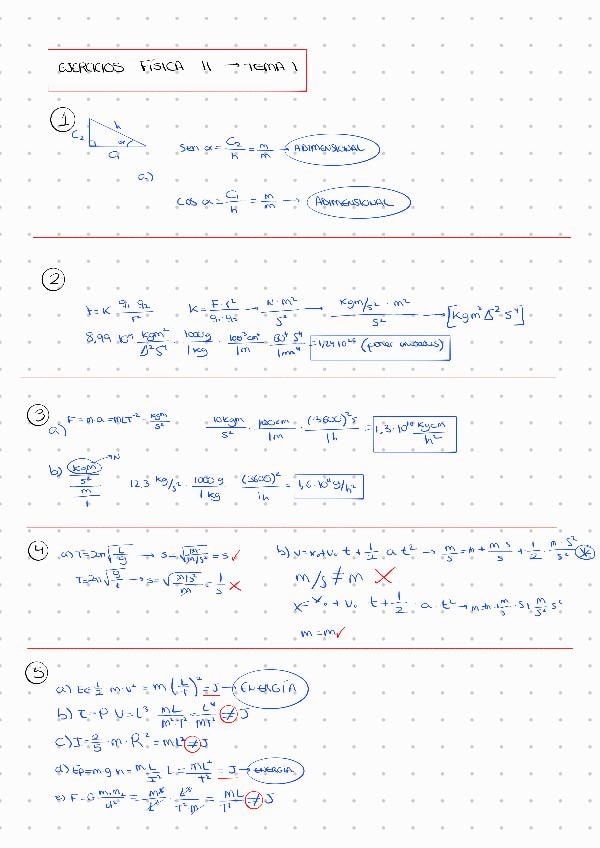 EJERCICIOS FÍSICA II → TEMA 1
1
C₂ h α
C₁
a)
sen α = C₂/h = m/m → ADIMENSIONAL
cos α = C₁/h = m/m → ADIMENSIONAL
2
F = K q₁ q₂/r² K = F·r²/q₁·q₂ → N·m²/ → Kgm/s² · m²/ → [Kgm³ A⁻² s⁻⁴]
8,99·10⁹ · 1000g/1kg · 100³cm³/1m · 60⁴ s⁴/1min⁴ = (poner unidades)
3
a) F = m·a = MLT⁻² = kgm/s² 10kgm/s² · 100cm/1m · (3600)²s/1h = 1,3·10¹⁰ kgcm/h²
b) kgm/s² / m/ → N 12,3 kg/s² · 1000g/1kg · (3600)²/1h = 1,6·10¹¹ g/h²
4
a) T = 2π√(L/g) → s = √(m/m/s²) = s ✓
T = 2π√(g/L) → s = √(m/s²/m) = 1/s ✗
b) v = x₀ + v₀ t + 1/2 a t² → m/s = m + m·s/s + 1/2 · m·s²/s² ✗
m/s ≠ m ✗
x = x₀ + v₀ t + 1/2 · a · t² → m = m + m/s · s + m/s² s²
m = m ✓
5
a) Ec = 1/2 m·v² = m (L/T)² = J → ENERGÍA
b) ≠ J
c) I = 2/5 · m · R² = mL² ≠ J
d) Ep = m g h = m·L/T² L = mL²/T² = J → ENERGÍA
e) F = G · m₁m₂/d² = mL/T² ≠ J